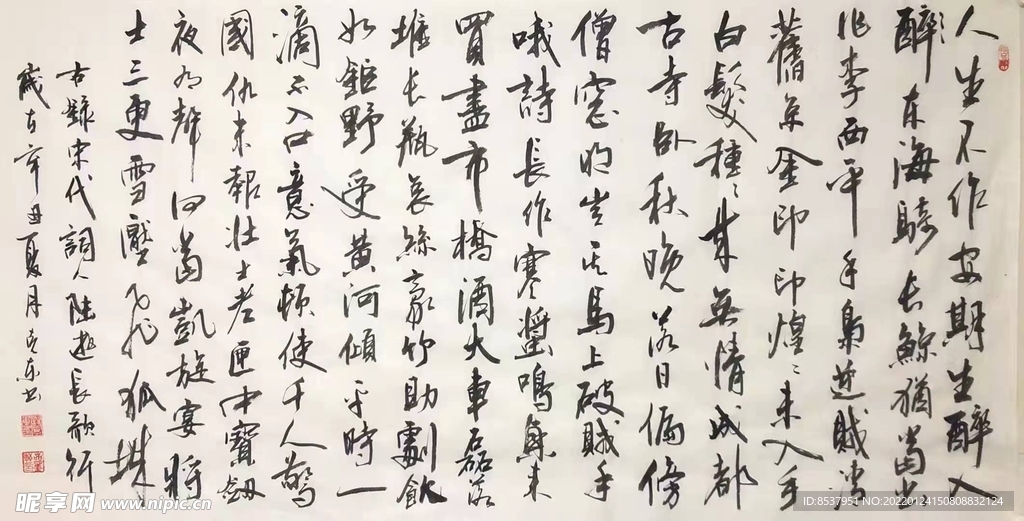 人生不作安期生醉入
醉东海騎长鯨猶當出
作李西平手梟逆賊清
舊京金印印煌〻未入手
白髮種〻來無情成都
古寺卧秋晚落日偏傍
僧窓明豈其馬上破賊手
哦詩長作寒螿鳴興来
買盡市橋酒大車磊落
堆长瓶哀絲豪竹助劇飲
如鉅野受黄河傾平時一
滴不入口意氣頓使千人驚
國仇未報壮士老匣中寶劔
夜有聲何當凱旋宴將
士三更雪壓飛狐城
右錄宋代詞人陸遊長歌行
歲在辛丑夏月克东书
昵享网 www.nipic.cn
ID:8537951 NO:20220124150808832124